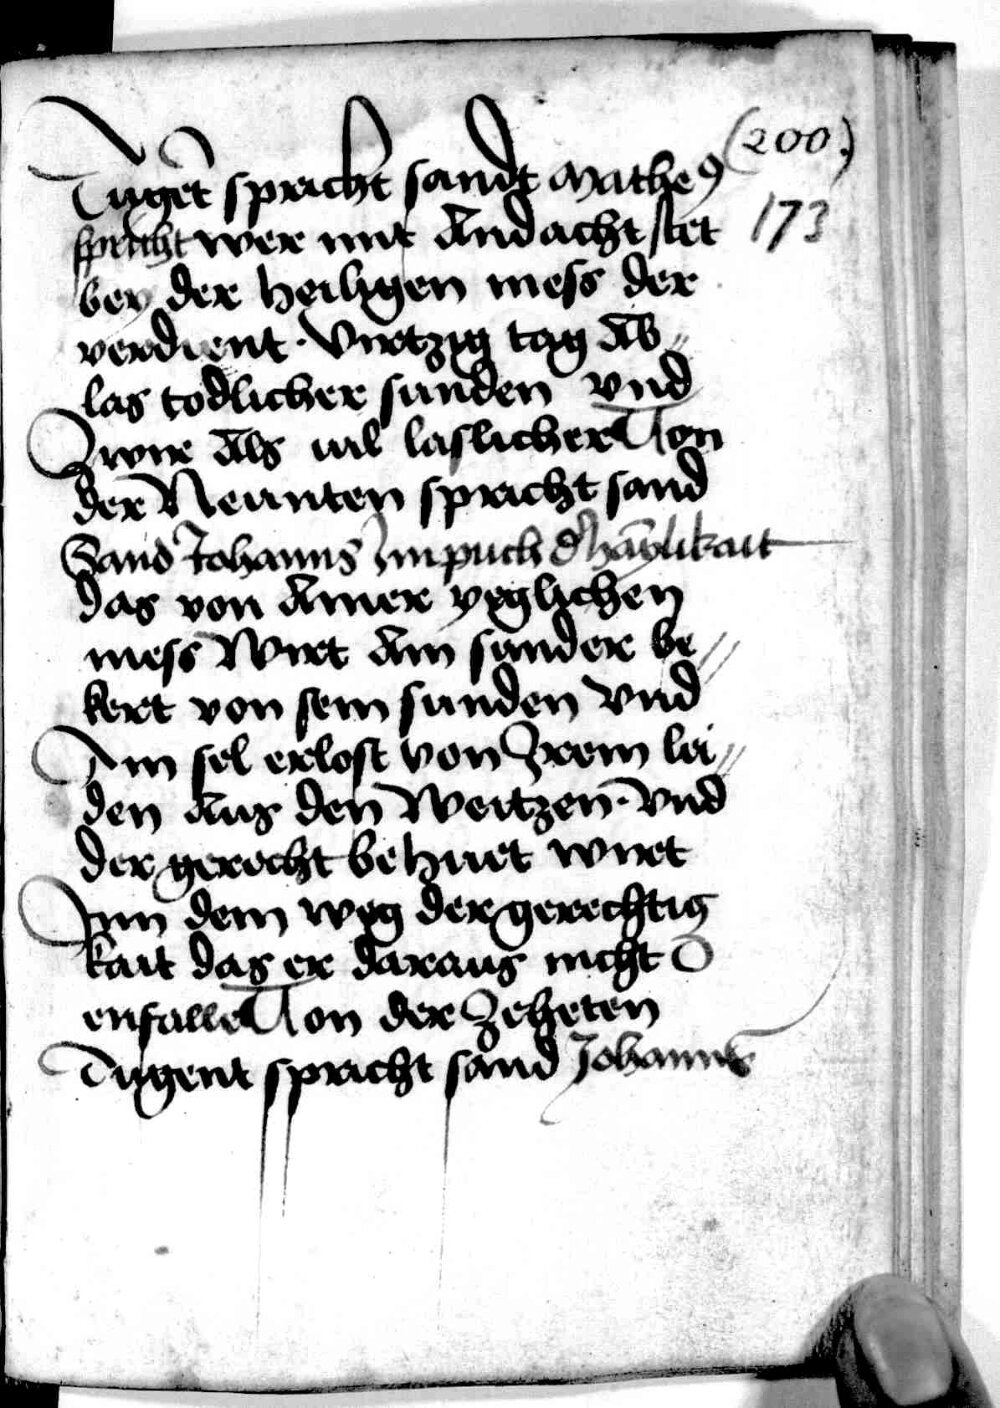 (200)
Tugēt spricht sandt Matheꝰ
spricht wer mit Andacht stet
173
bey der heiligen mess der
verdient · virtzig tag Ab〃
las todlicher sunden vnd
Zwir Als uil laslicher Uon
der Neunten spricht sand
Sand Johanns Jm puch d haymlikait
das von Ainer yeglichen
mess Wirt Ain sunder be〃
kert von sein sunden Vnd
Ain sel erlost von Jrem lei〃
den Aus den Weitzen · Vnd
der gerecht behuet wirt
Jnn dem weg der gerechtig
kait das er daraus nicht
enfalle Uon der Zeheten
Tugent spricht sand Johanns